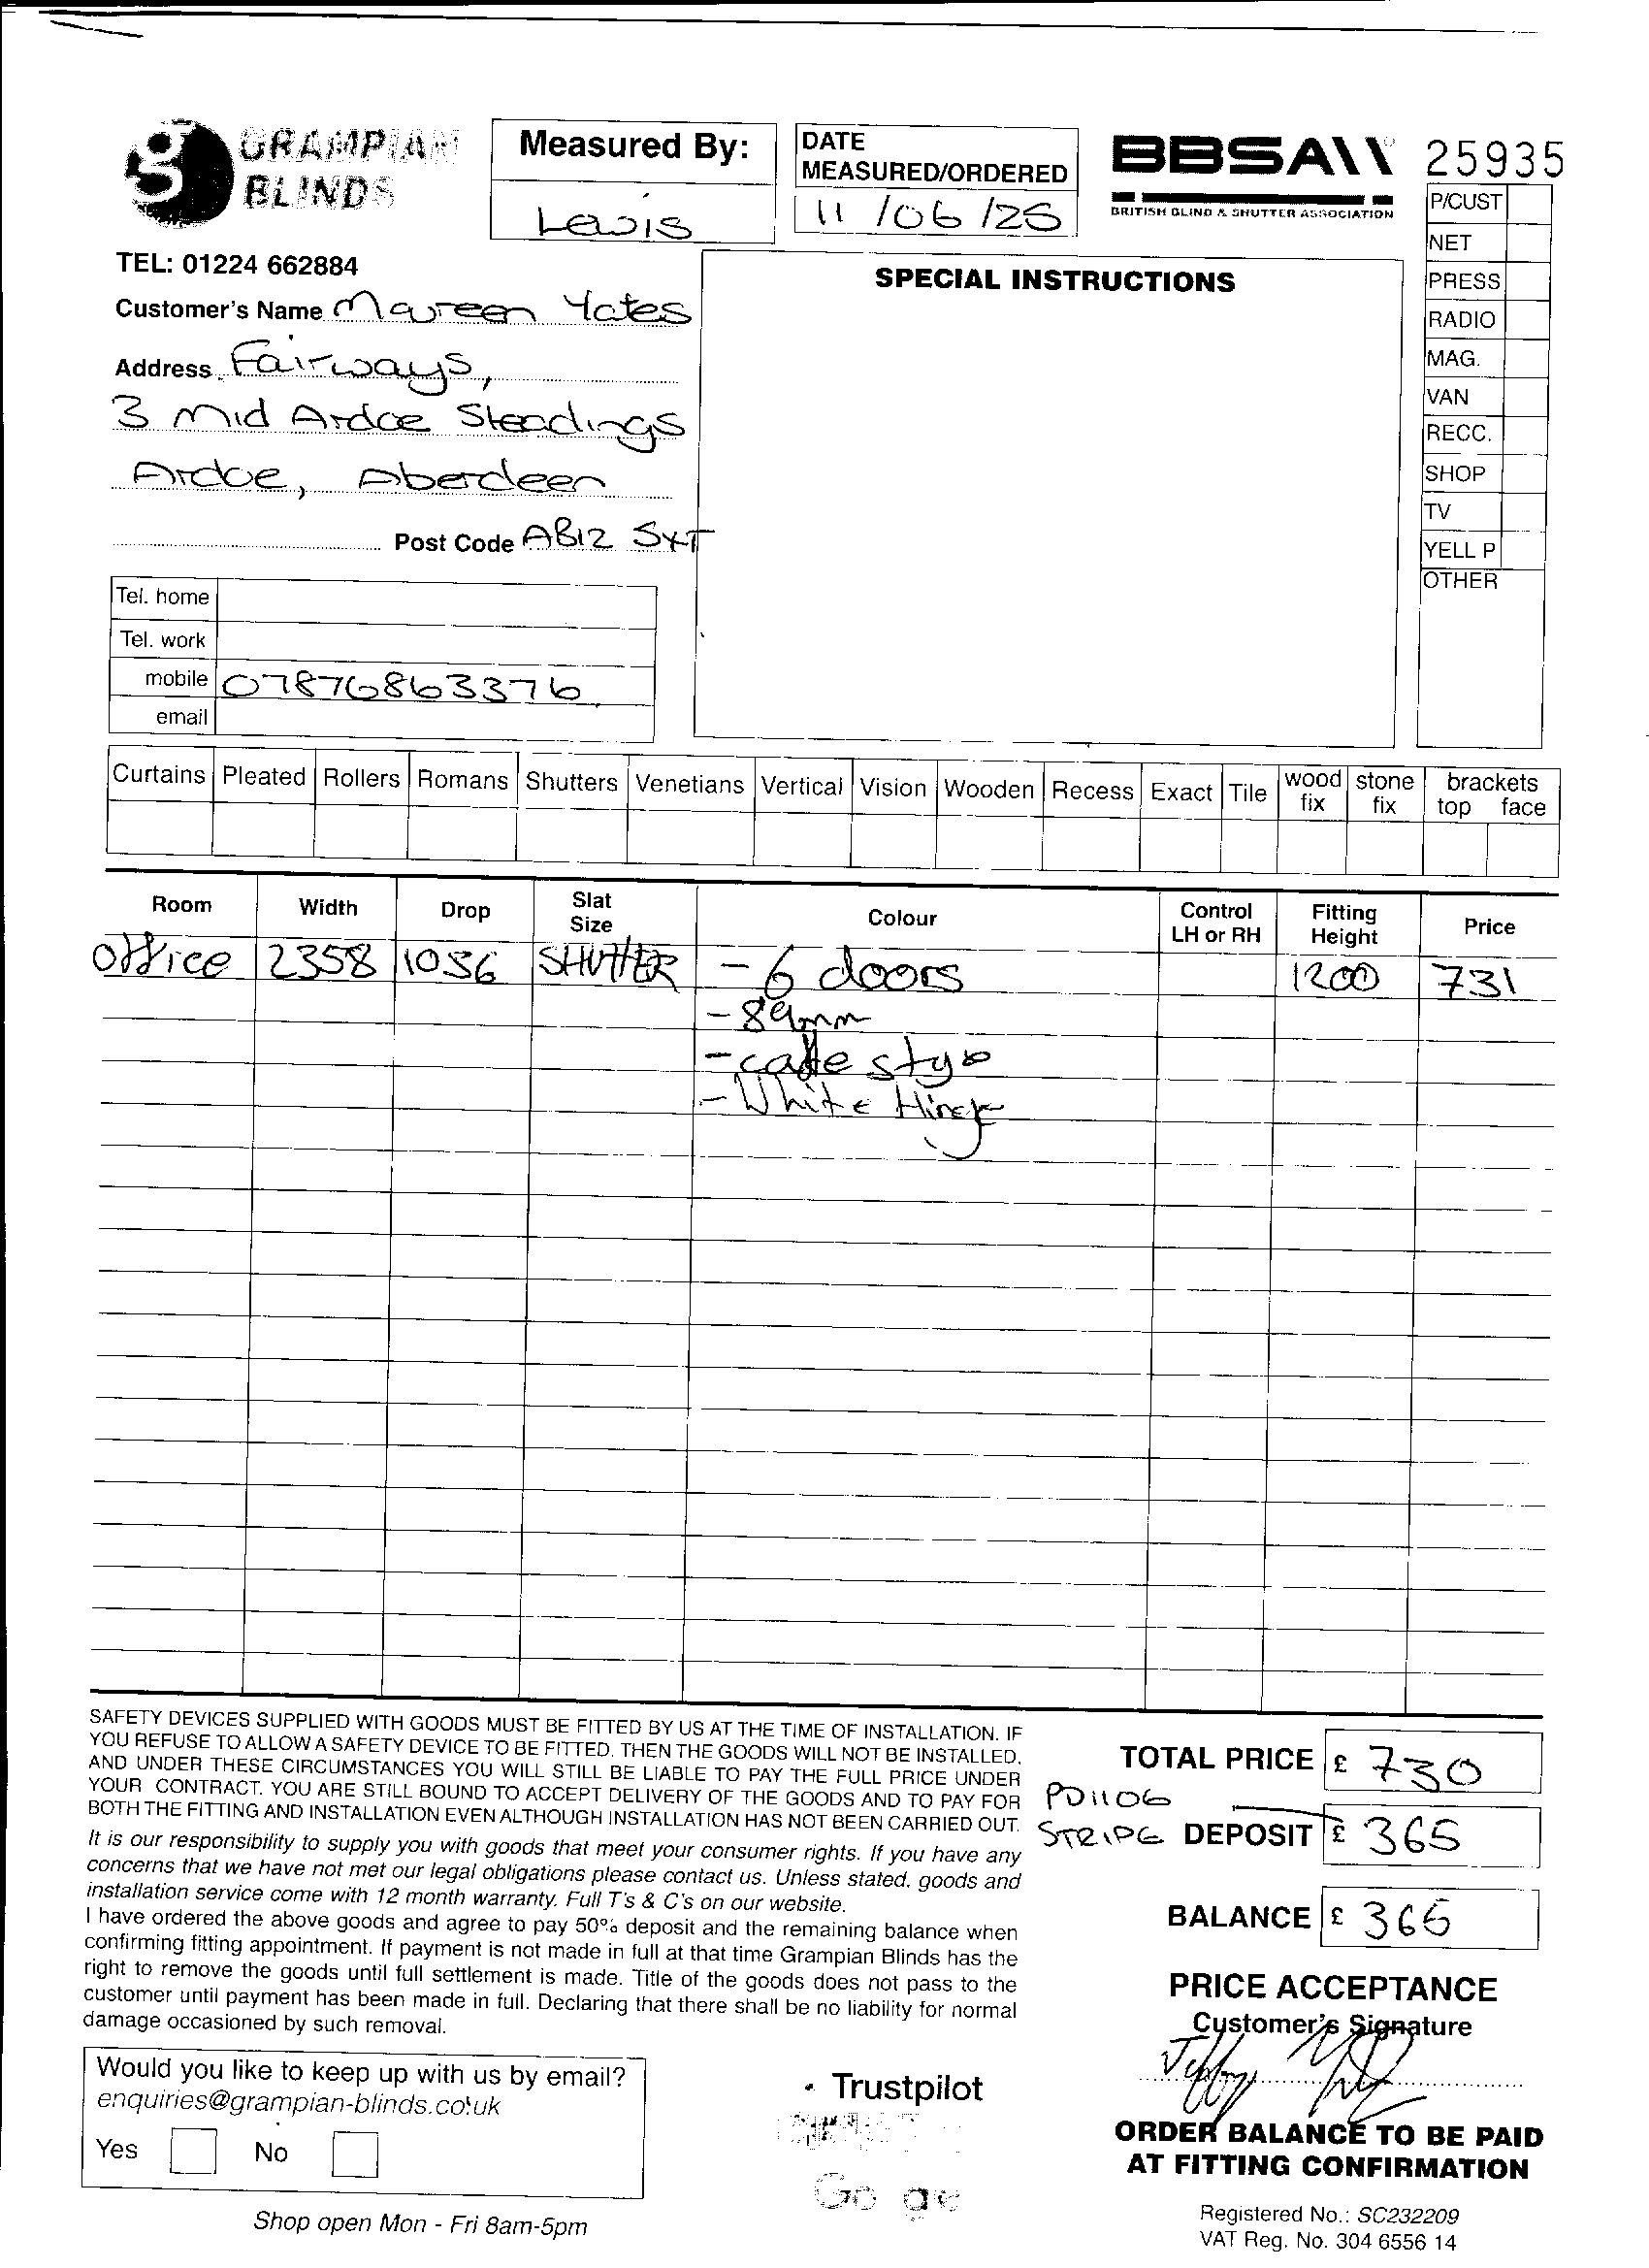 GRAMPIAN
BLINDS
Measured By:
Lewis
DATE
MEASURED/ORDERED
11/06/25
BBSA
BRITISH BLIND & SHUTTER ASSOCIATION
25935
P/CUST
NET
PRESS
RADIO
MAG.
VAN
RECC.
SHOP
TV
YELL P
OTHER
TEL: 01224 662884
Customer's Name Maureen Yates
Address Fairways,
3 Mid Ardoe Steadings
Ardoe, Aberdeen
Post Code AB12 5XT
SPECIAL INSTRUCTIONS
Tel. home
Tel. work
mobile 07876863376
email
Curtains Pleated Rollers Romans Shutters Venetians Vertical Vision Wooden Recess Exact Tile wood fix stone fix brackets top face
Room Width Drop Slat Size Colour Control LH or RH Fitting Height Price
Office 2358 1056 SHUTTER - 6 doors 1200 731
- 89mm
- cafe style
- White Hinge
SAFETY DEVICES SUPPLIED WITH GOODS MUST BE FITTED BY US AT THE TIME OF INSTALLATION. IF
YOU REFUSE TO ALLOW A SAFETY DEVICE TO BE FITTED, THEN THE GOODS WILL NOT BE INSTALLED,
AND UNDER THESE CIRCUMSTANCES YOU WILL STILL BE LIABLE TO PAY THE FULL PRICE UNDER
YOUR CONTRACT. YOU ARE STILL BOUND TO ACCEPT DELIVERY OF THE GOODS AND TO PAY FOR
BOTH THE FITTING AND INSTALLATION EVEN ALTHOUGH INSTALLATION HAS NOT BEEN CARRIED OUT.
It is our responsibility to supply you with goods that meet your consumer rights. If you have any
concerns that we have not met our legal obligations please contact us. Unless stated, goods and
installation service come with 12 month warranty. Full T's & C's on our website.
I have ordered the above goods and agree to pay 50% deposit and the remaining balance when
confirming fitting appointment. If payment is not made in full at that time Grampian Blinds has the
right to remove the goods until full settlement is made. Title of the goods does not pass to the
customer until payment has been made in full. Declaring that there shall be no liability for normal
damage occasioned by such removal.
TOTAL PRICE £ 730
PD1106
STRIPE DEPOSIT £ 365
BALANCE £ 365
PRICE ACCEPTANCE
Customer's Signature
ORDER BALANCE TO BE PAID
AT FITTING CONFIRMATION
Would you like to keep up with us by email?
enquiries@grampian-blinds.co.uk
Yes No
Trustpilot
Google
Shop open Mon - Fri 8am-5pm
Registered No.: SC232209
VAT Reg. No. 304 6556 14